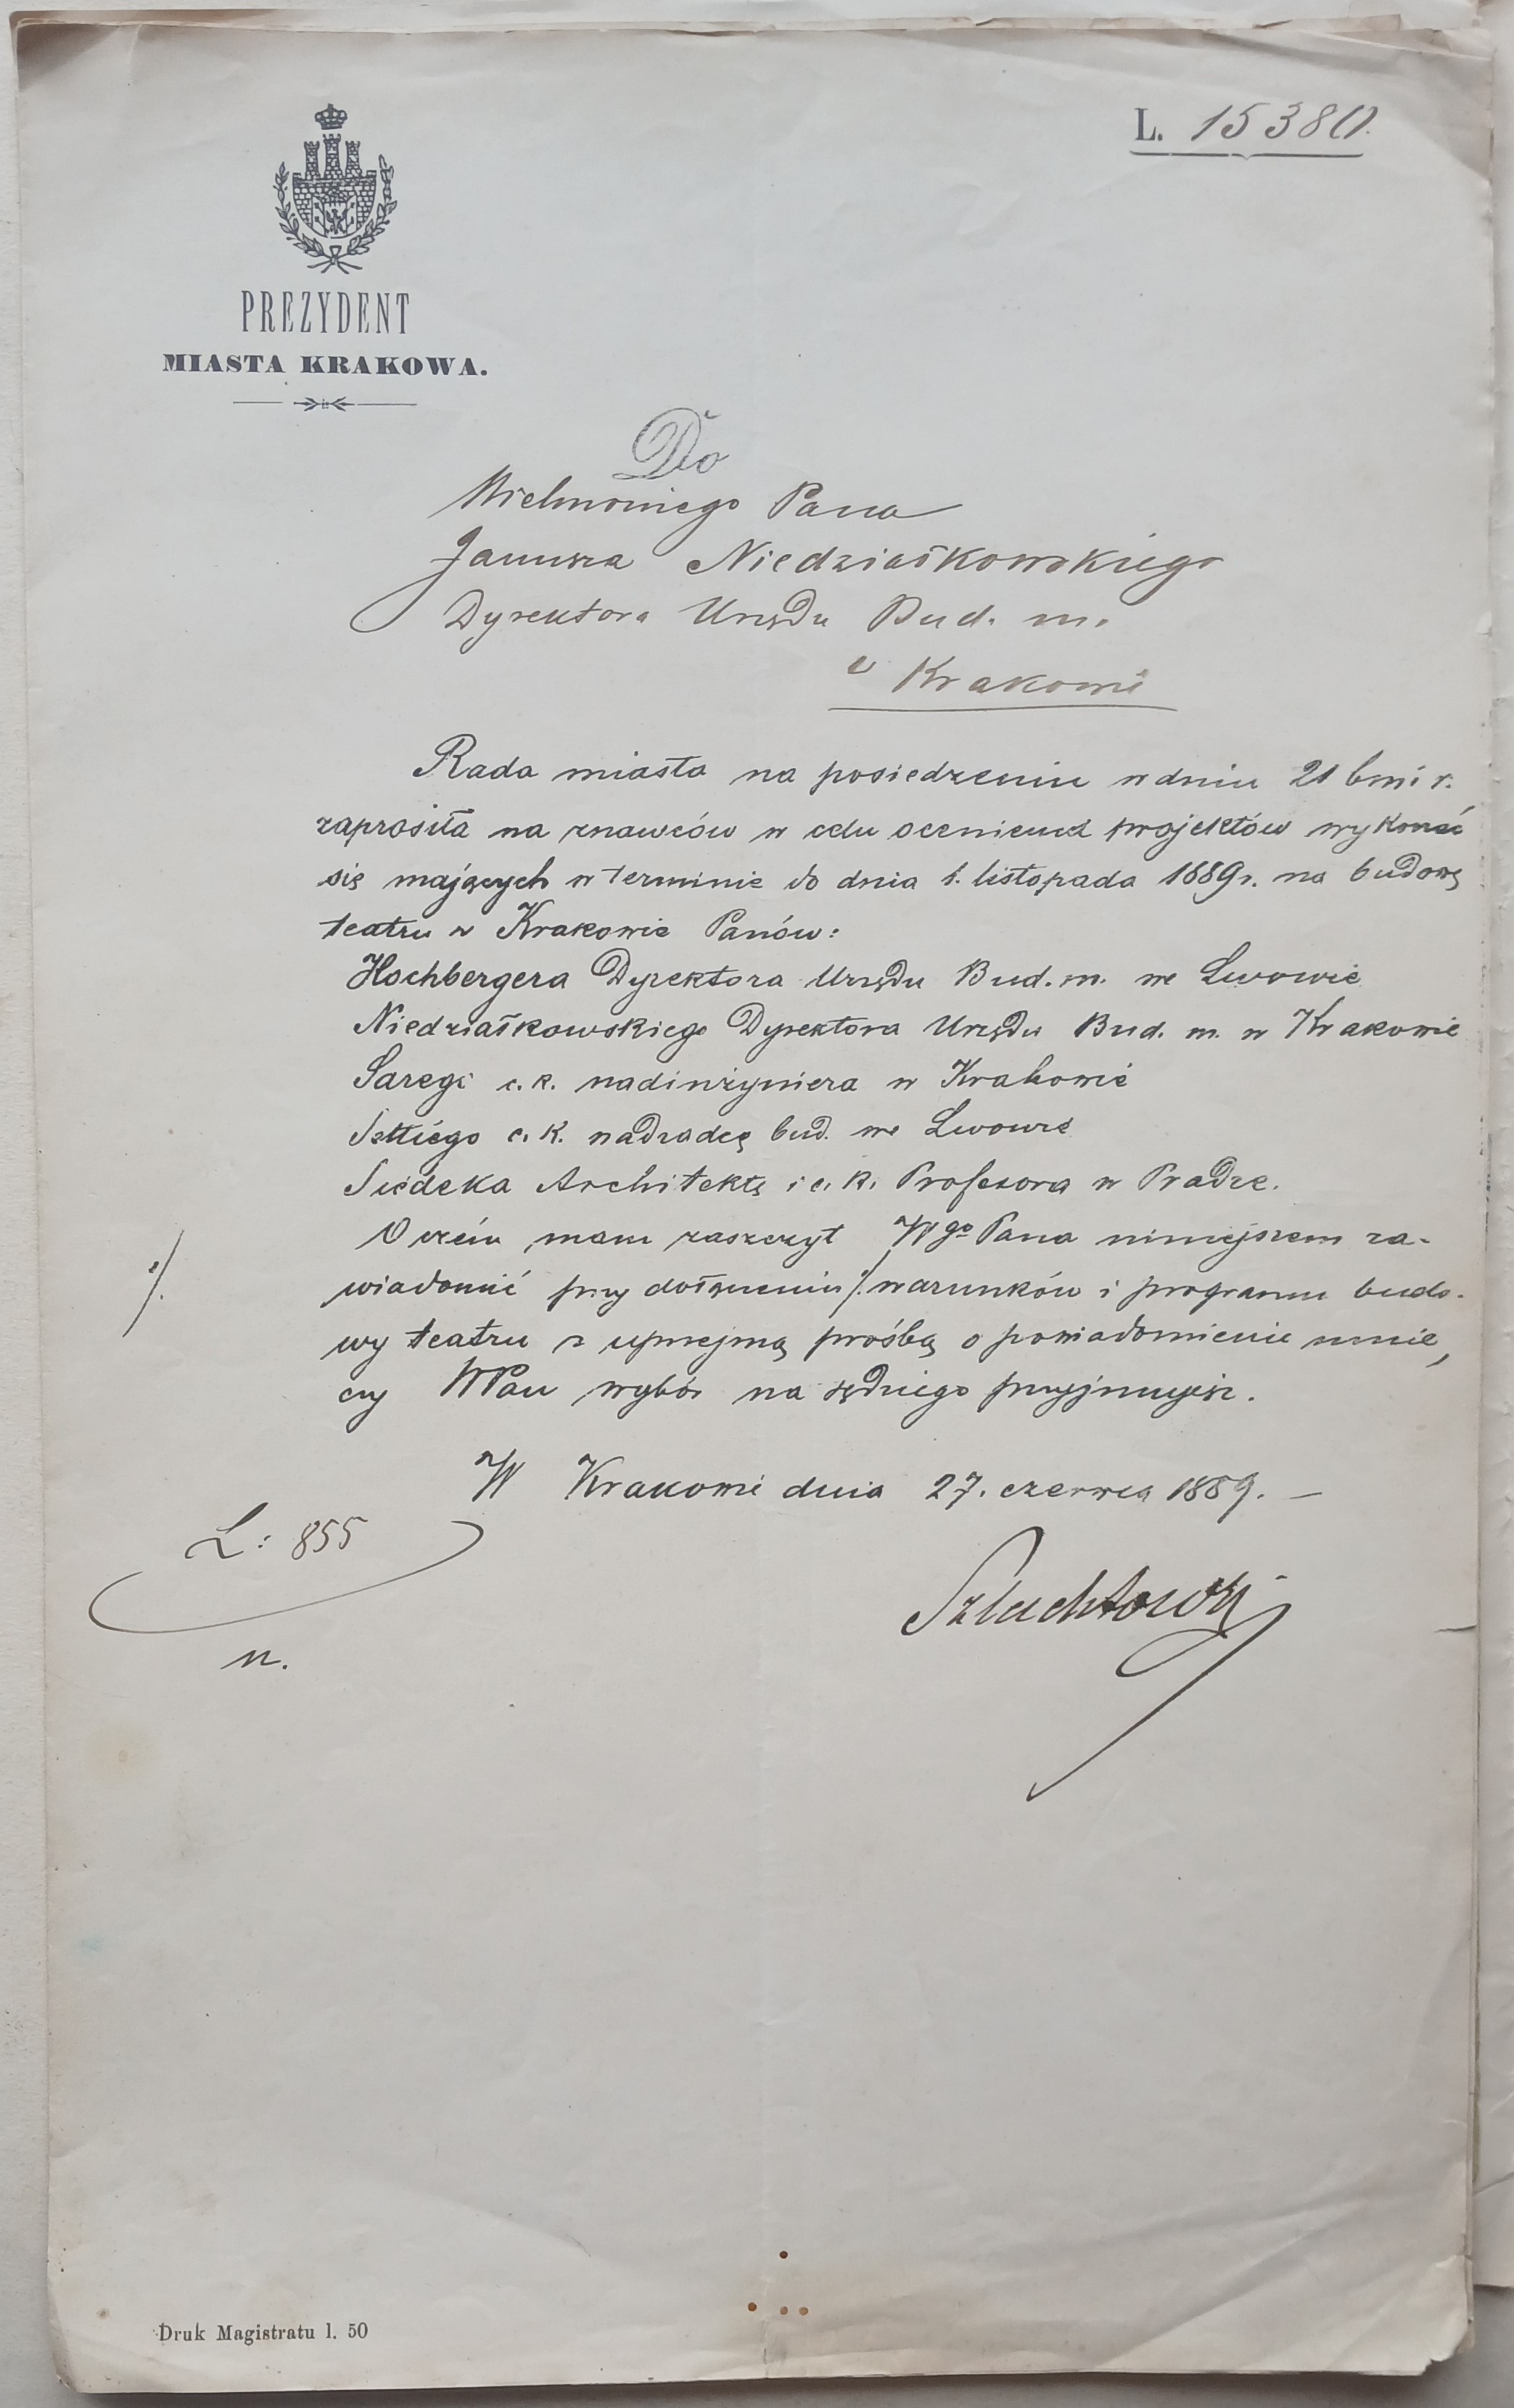 L. 15380.
PREZYDENT
MIASTA KRAKOWA.
Do
Wielmożnego Pana
Janusza Niedziałkowskiego
Dyrektora Urzędu Bud. m.
w Krakowie
Rada miasta na posiedzeniu w dniu 21 bm i r.
zaprosiła na znawców w celu ocenienia projektów wykonać
się mających w terminie do dnia 1. listopada 1889 r. na budowę
teatru w Krakowie Panów:
Hochbergera Dyrektora Urzędu Bud. m. we Lwowie
Niedziałkowskiego Dyrektora Urzędu Bud. m. w Krakowie
Sarego c. k. nadinżyniera w Krakowie
Settiego c. k. nadradcę bud. we Lwowie
Architektę i c. k. Profesora w Pradze.
O czém mam zaszczyt Wgo Pana niniejszem za-
wiadomić przy dołączeniu ./. warunków i programu budo-
wy teatru z uprzejmą prośbą o powiadomienie mnie,
czy WPan wybór na sędziego przyjmujesz.
W Krakowie dnia 27. czerwca 1889. —
./.
L: 855
Szlachtowski
n.
Druk Magistratu l. 50